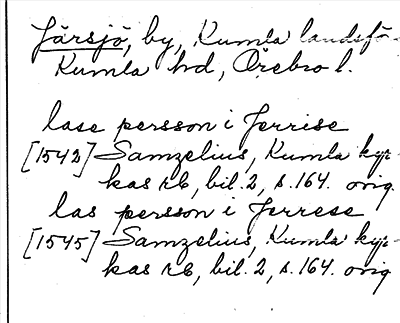 Järsjö, by, Kumla landsfö-
Kumla hd, Örebro l.
lase persson i Jerrise
[1542] Samzelius, Kumla kyr-
kas rb, bil. 2, s. 164. orig
las persson i Jerrese
[1545] Samzelius, Kumla kyr-
kas rb, bil. 2, s. 164. orig